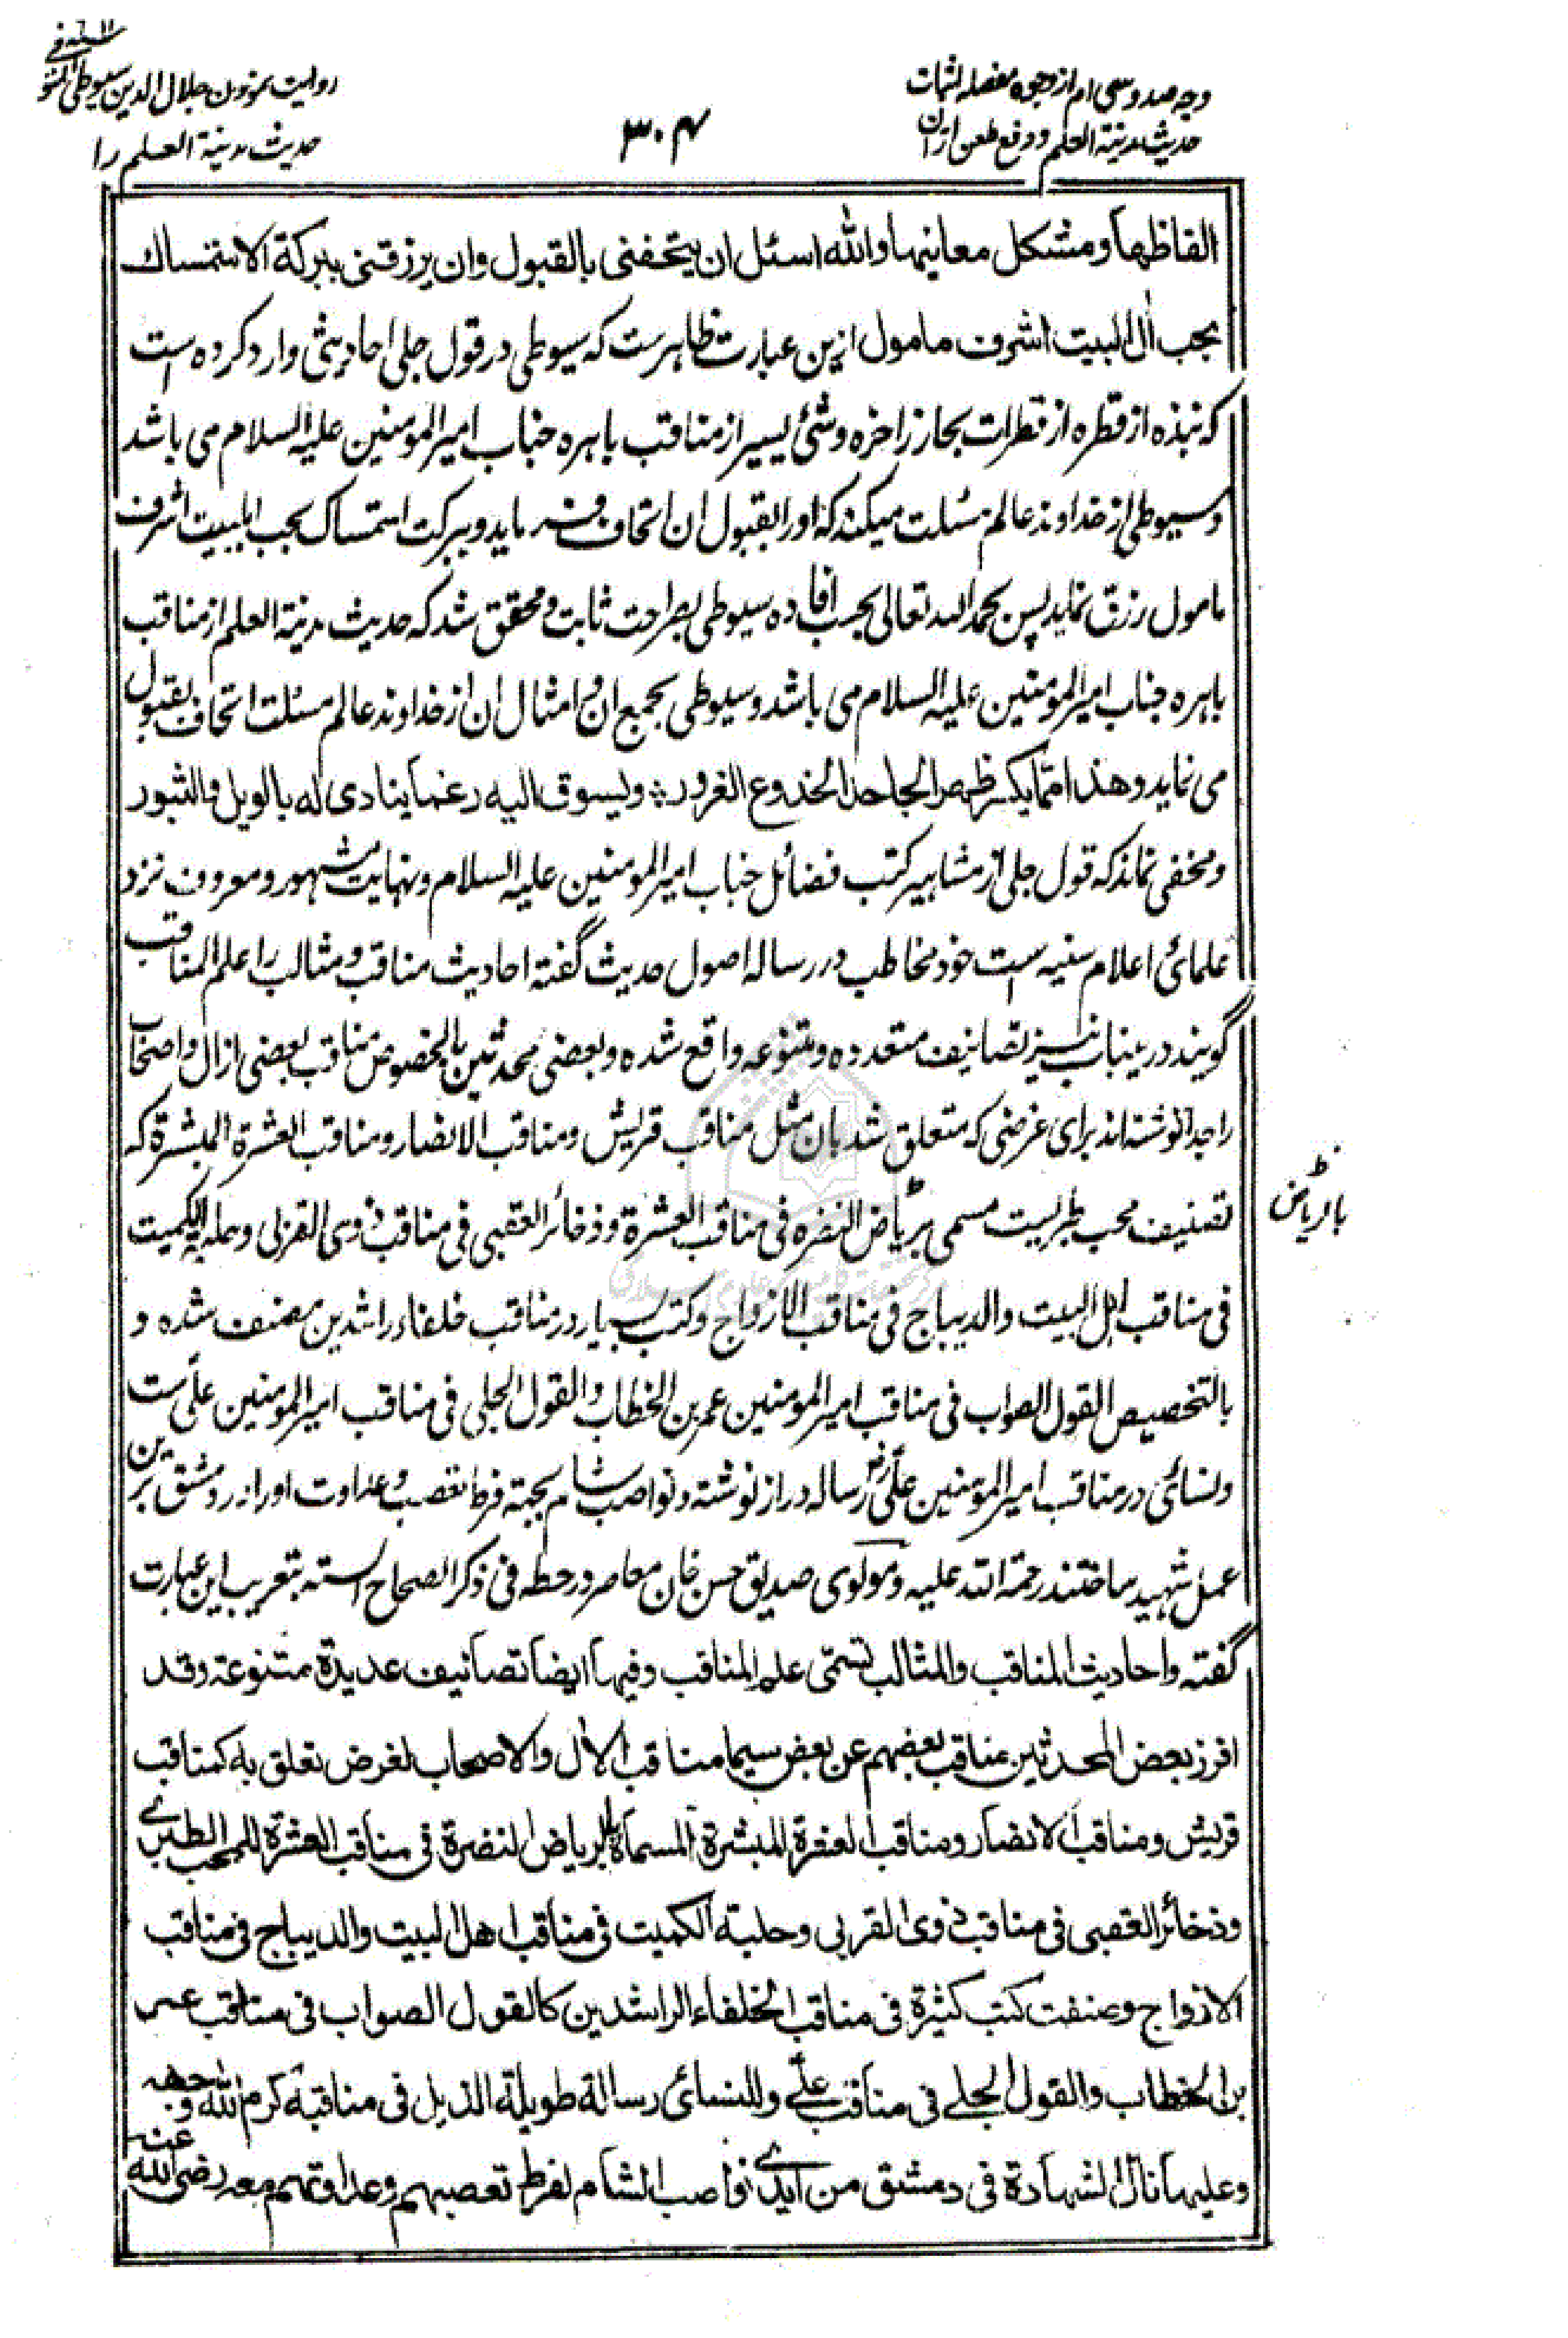 وجه صد و سی ام از وجوه مفصله اثبات
حدیث مدینة العلم و دفع طعن از آن
۳۰۴
روایت نمودن جلال الدین سیوطی المتوفی سنه ۹۱۱
حدیث مدینة العلم را
الفاظها و مشکل معانیها والله اسئل ان یتحفنی بالقبول وان یرزقنی ببرکة الاستمساک
بحب آل البیت اشرف مامول ازین عبارت ظاهرست که سیوطی در قول جلی احادیثی وارد کرده است
که نبذه از قطره از قطرات بحار زاخره و شئ یسیر از مناقب باهره جناب امیر المومنین علیه السلام می باشد
و سیوطی از خداوند عالم مسئلت میکند که او را بقبول ان اتحاف فرماید و ببرکت استمساک بحب اهلبیت اشرف
مامول رزق نماید پس بحمد الله تعالی بحسب افاده سیوطی بصراحت ثابت و محقق شد که حدیث مدینة العلم از مناقب
باهره جناب امیر المؤمنین علیه السلام می باشد و سیوطی بجمع ان و امثال ان از خداوند عالم مسئلت اتحاف بقبول
می نماید و هذا مما یکسر ظهر الجاحد الخدوع الغرور ؞ ویسوق الیه رغما ینادی له بالویل والثبور
و مخفی نماند که قول جلی از مشاهیر کتب فضائل جناب امیر المومنین علیه السلام و نهایت مشهور و معروف نزد
علمائ اعلام سنیه است خود مخاطب در رساله اصول حدیث گفته احادیث مناقب و مثالب را علم المناقب
گویند درینباب نیز تصانیف متعدده و متنوعه واقع شده و بعضی محدثین بالخصوص مناقب بعضی از ال و اصحاب
را جدا نوشته اند برای غرضی که متعلق شد بان مثل مناقب قریش و مناقب الانصار و مناقب العشرة المبشرة که
تصنیف محب طبریست مسمی بریاض النضره فی مناقب العشرة و ذخائر العقبی فی مناقب ذوی القربی و حلیة الکمیت
بالریاض
فی مناقب اهل البیت والدیباج فی مناقب الازواج و کتب بسیار در مناقب خلفاء راشدین مصنف شده و
بالتخصیص القول الصواب فی مناقب امیر المومنین عمر بن الخطاب و القول الجلی فی مناقب امیر المومنین علی ست
و نسائی در مناقب امیر المومنین علی رض رساله دراز نوشته و نواصب شام بجهة فرط تعصب و عداوت او را در دمشق برین
عمل شهید ساختند رحمة الله علیه و مولوی صدیق حسن خان معاصر در حطه فی ذکر الصحاح الستة بتعریب این عبارت
گفته واحادیث المناقب والمثالب تسمی علم المناقب وفیها ایضا تصانیف عدیدة متنوعة وقد
افرز بعض المحدثین مناقب بعضهم عن بعض سیما مناقب الآل والاصحاب لغرض تعلق به کمناقب
قریش ومناقب الانصار ومناقب العشرة المبشرة المسماة بالریاض النضرة فی مناقب العشرة للمحب الطبری
وذخائر العقبی فی مناقب ذوی القربی وحلیة الکمیت فی مناقب اهل البیت والدیباج فی مناقب
الازواج وصنفت کتب کثیرة فی مناقب الخلفاء الراشدین کالقول الصواب فی مناقب عمر
بن الخطاب والقول الجلی فی مناقب علی وللنسائی رسالة طویلة الذیل فی مناقبه کرم الله وجهه
وعلیها نال الشهادة فی دمشق من ایدی نواصب الشام لفرط تعصبهم وعداوتهم معه رضی الله عنه